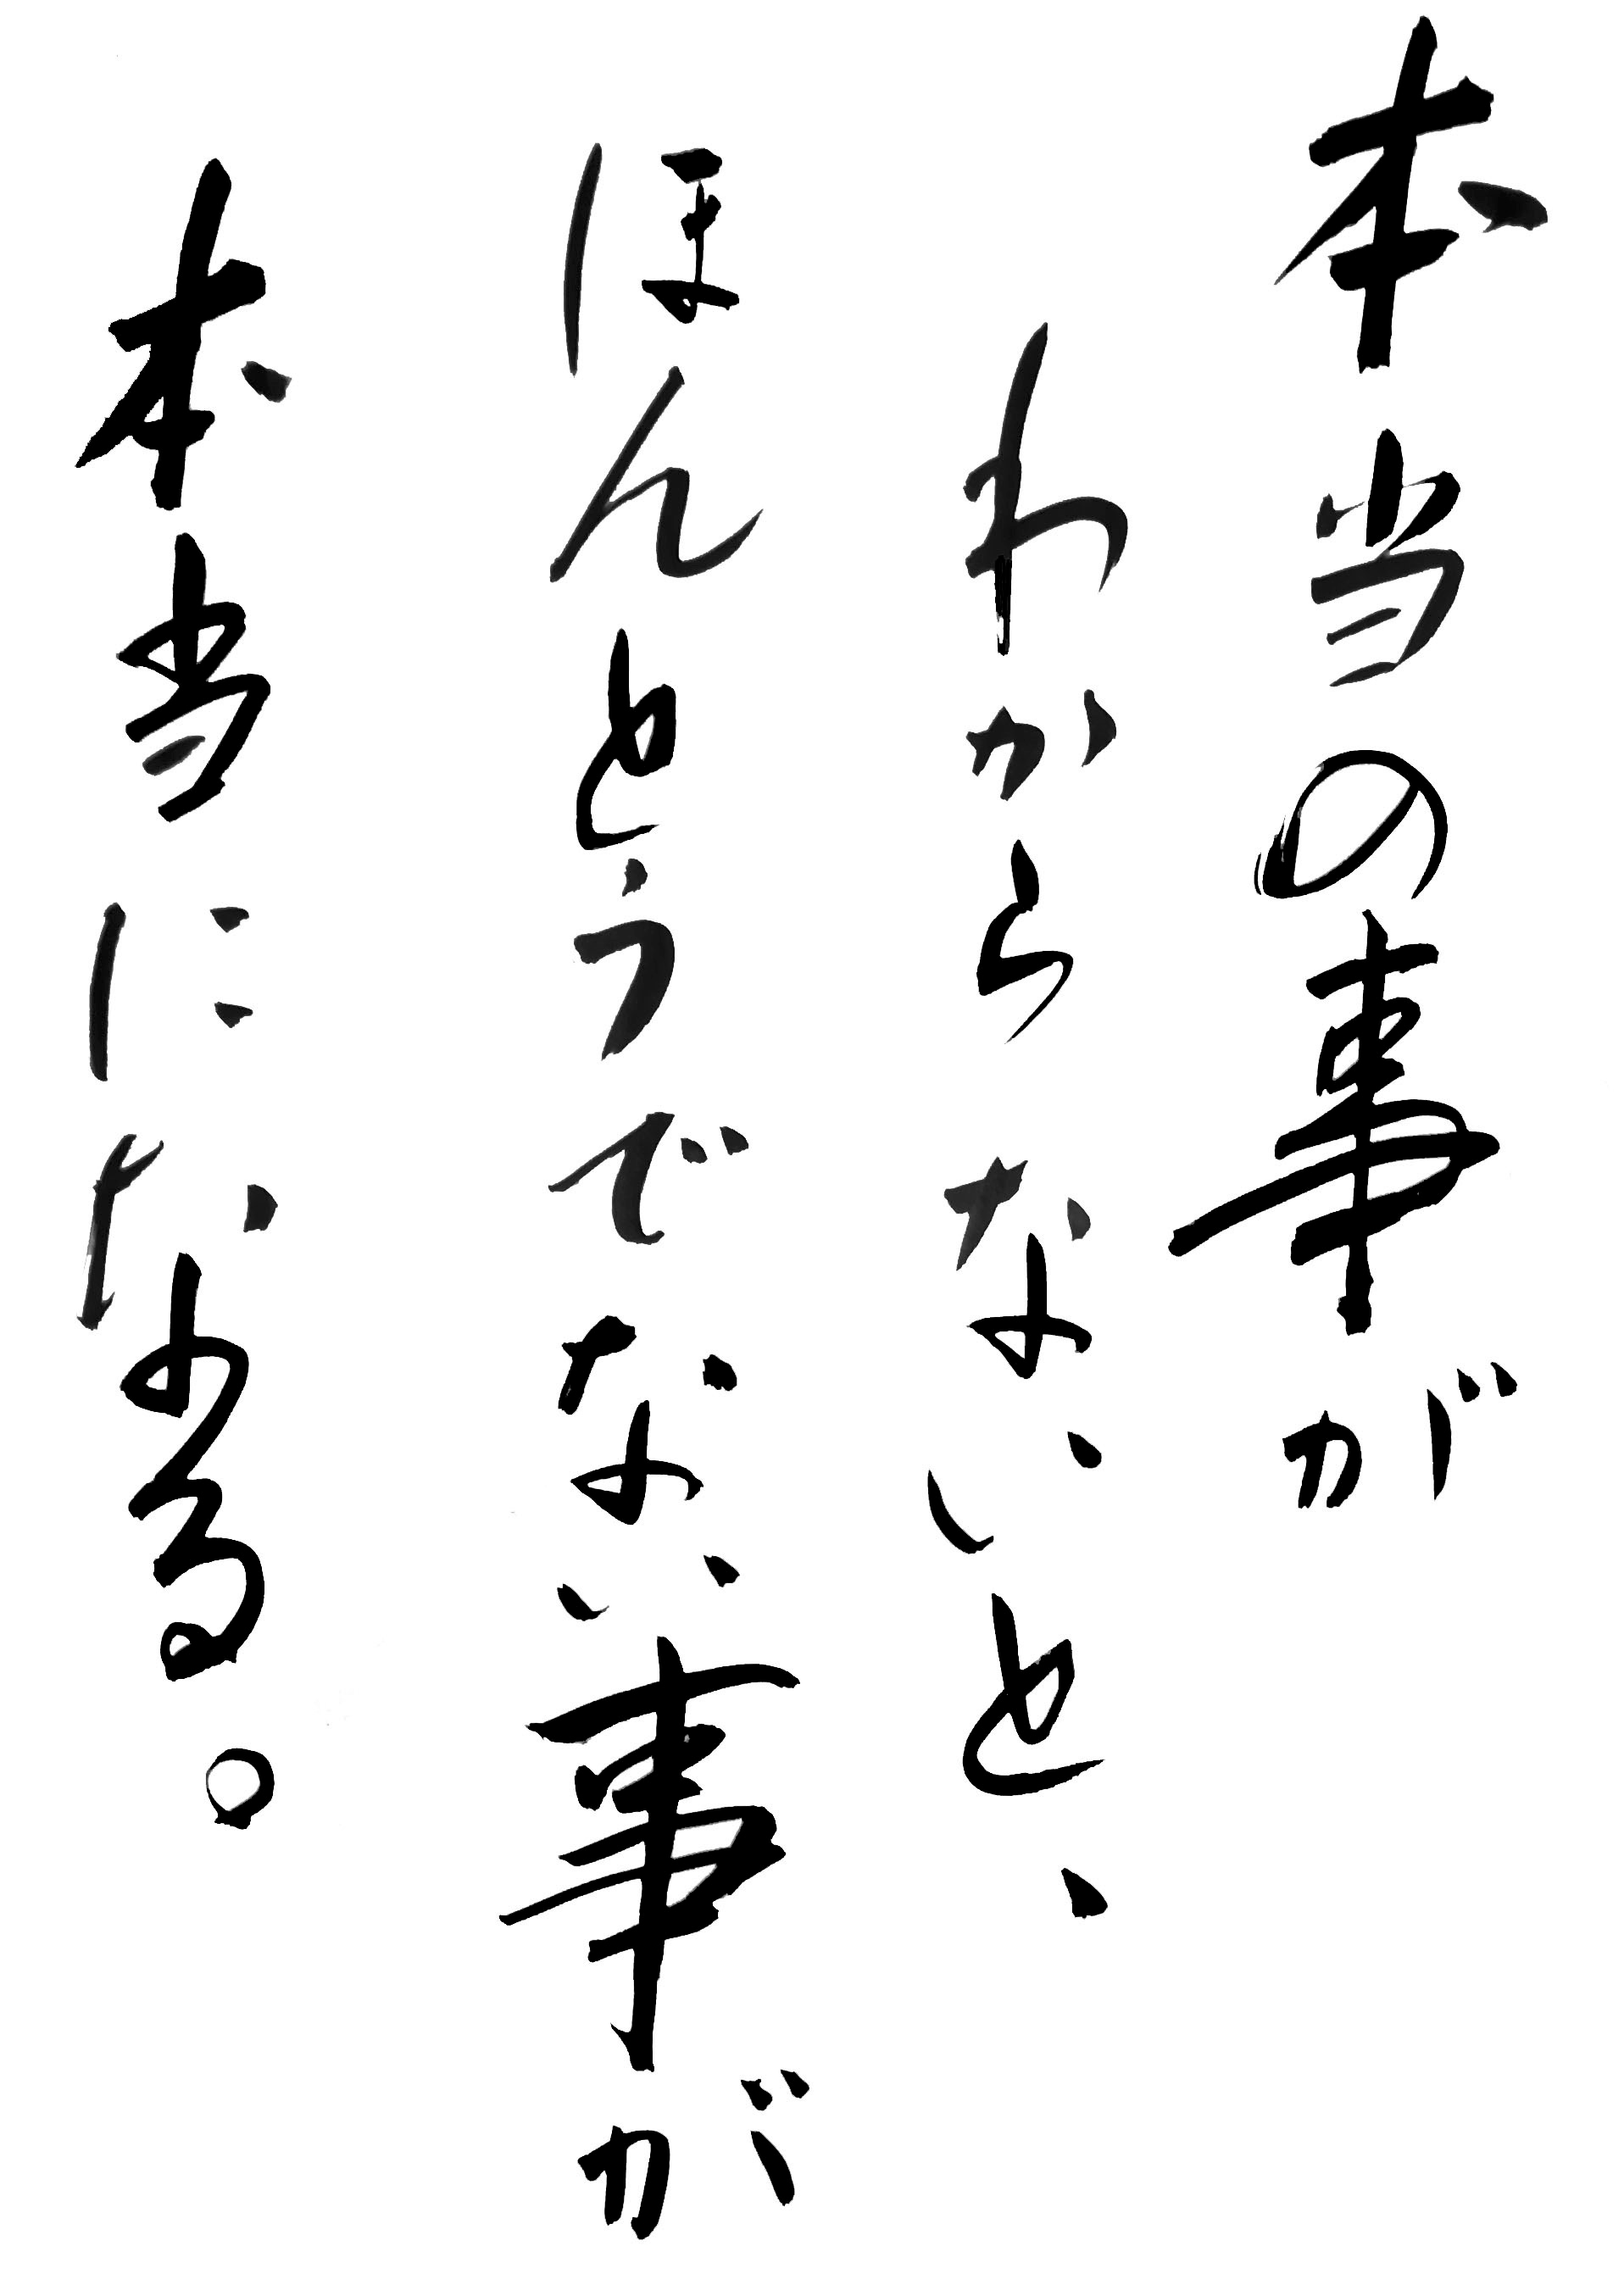 本当の事が
わからないと、
ほんとうでない事が
本当になる。